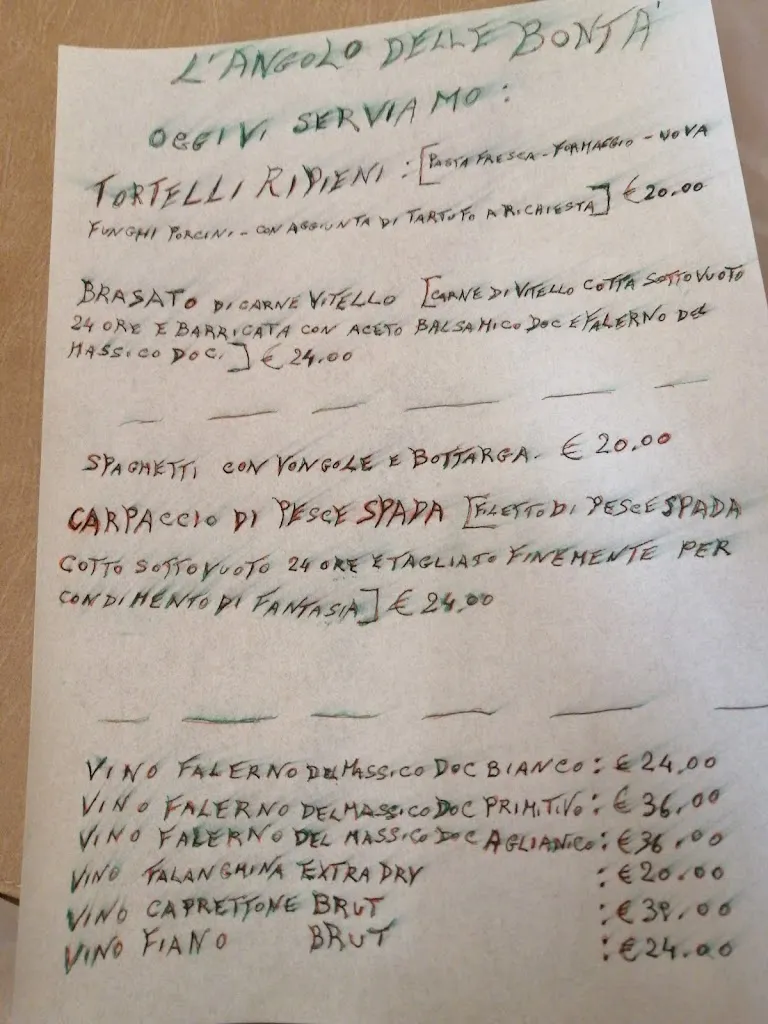 L'ANGOLO DELLE BONTA'
OGGI VI SERVIAMO:
TORTELLI RIPIENI : [PASTA FRESCA - FORMAGGIO - UOVA
FUNGHI PORCINI - CON AGGIUNTA DI TARTUFO A RICHIESTA] € 20.00
BRASATO DI CARNE VITELLO [CARNE DI VITELLO COTTA SOTTOVUOTO
24 ORE E BARRICATA CON ACETO BALSAMICO DOC E FALERNO DEL
MASSICO DOC.] € 24.00
SPAGHETTI CON VONGOLE E BOTTARGA. € 20.00
CARPACCIO DI PESCE SPADA [FILETTO DI PESCE SPADA
COTTO SOTTOVUOTO 24 ORE E TAGLIATO FINEMENTE PER
CONDIMENTO DI FANTASIA] € 24,00
VINO FALERNO DEL MASSICO DOC BIANCO : € 24,00
VINO FALERNO DEL MASSICO DOC PRIMITIVO : € 36,00
VINO FALERNO DEL MASSICO DOC AGLIANICO : € 36,00
VINO FALANGHINA EXTRA DRY : € 20.00
VINO CAPRETTONE BRUT : € 39,00
VINO FIANO BRUT : € 24.00